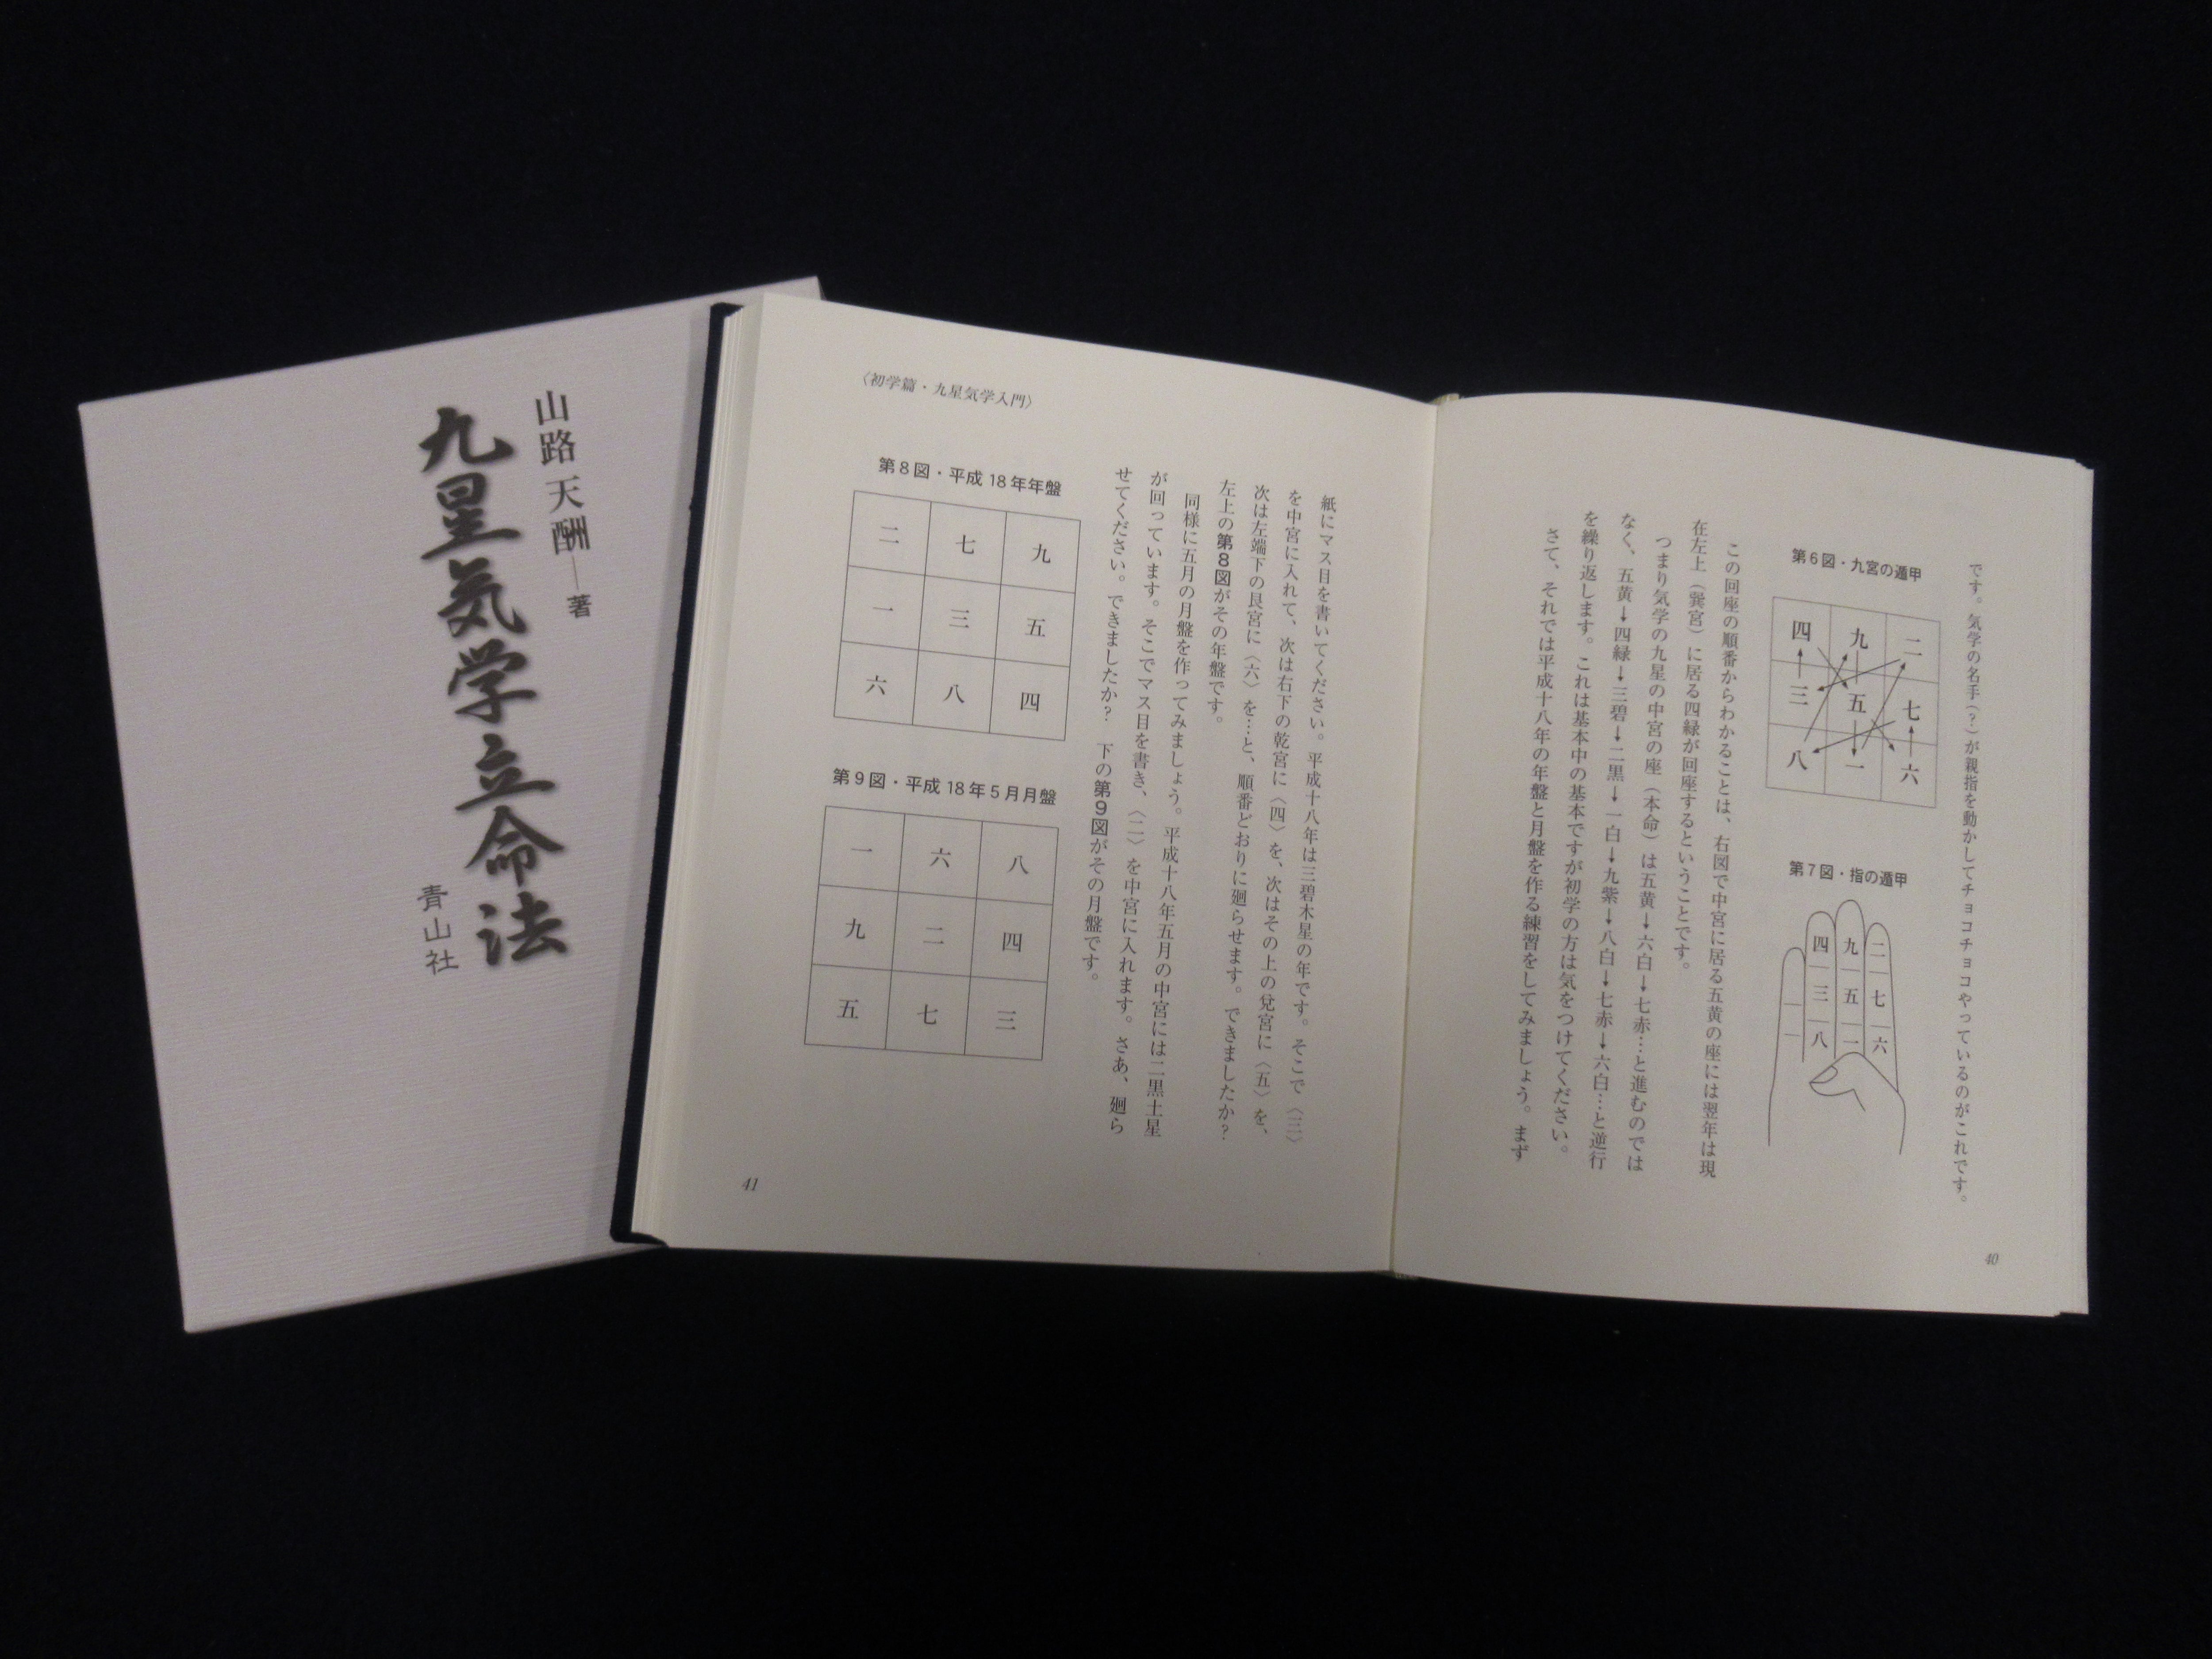 山路天酬―著
九星気学立命法
青山社
です。気学の名手(?)が親指を動かしてチョコチョコやっているのがこれです。
第6図・九宮の遁甲
四 九 二
三 五 七
八 一 六
第7図・指の遁甲
四 九 二
三 五 七
八 一 六
この回座の順番からわかることは、右図で中宮に居る五黄の座には翌年は現
在左上(巽宮)に居る四緑が回座するということです。
つまり気学の九星の中宮の座(本命)は五黄→六白→七赤…と進むのでは
なく、五黄→四緑→三碧→二黒→一白→九紫→八白→七赤→六白…と逆行
を繰り返します。これは基本中の基本ですが初学の方は気をつけてください。
さて、それでは平成十八年の年盤と月盤を作る練習をしてみましょう。まず
40
〈初学篇・九星気学入門〉
紙にマス目を書いてください。平成十八年は三碧木星の年です。そこで〈三〉
を中宮に入れて、次は右下の乾宮に〈四〉を、次はその上の兌宮に〈五〉を、
次は左端下の艮宮に〈六〉を…と、順番どおりに廻らせます。できましたか?
左上の第8図がその年盤です。
同様に五月の月盤を作ってみましょう。平成十八年五月の中宮には二黒土星
が回っています。そこでマス目を書き、〈二〉を中宮に入れます。さあ、廻ら
せてください。できましたか? 下の第9図がその月盤です。
第8図・平成18年年盤
二 七 九
一 三 五
六 八 四
第9図・平成18年5月月盤
一 六 八
九 二 四
五 七 三
41